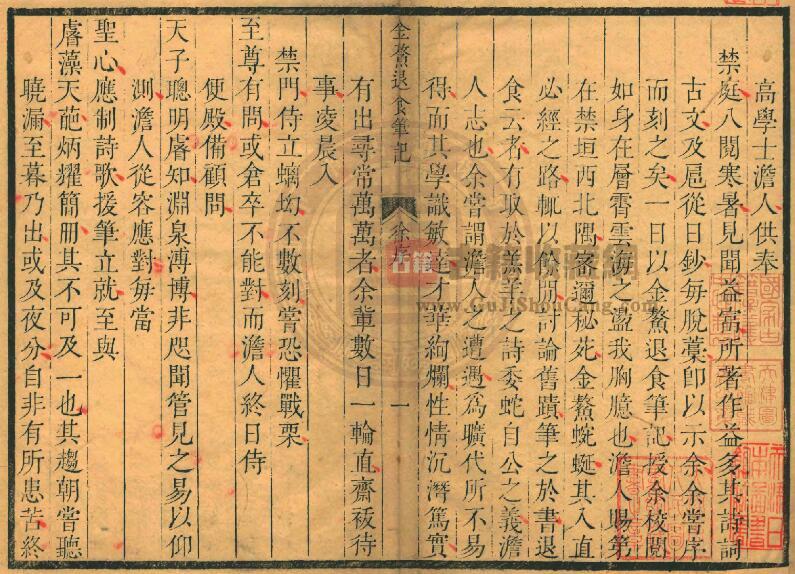 高學士澹人供奉
禁庭八閱寒暑見聞益富所著作益多其詩詞
古文及扈從日鈔每脫藁卽以示余余嘗序
而刻之矣一日以金鰲退食筆記授余校閱
如身在層霄雲海之盪我胸臆也澹人賜第
在禁垣西北隅密邇秘苑金鰲蜿蜒其入直
必經之路輒以餘閒討論舊蹟筆之於書退
食云者有取於羔羊之詩委蛇自公之義澹
人志也余嘗謂澹人之遭遇爲曠代所不易
得而其學識敏達才華絢爛性情沉潛篤實
金鰲退食筆記
徐序
一
有出尋常萬萬者余輩數日一輪直齋祓待
事凌晨入
禁門侍立螭㘭不數刻嘗恐懼戰栗
至尊有問或倉卒不能對而澹人終日侍
便殿備顧問
天子聰明睿知淵泉溥博非咫聞管見之易以仰
測澹人從容應對每當
聖心應制詩歌援筆立就至與
睿藻天葩炳耀簡冊其不可及一也其趨朝嘗聽
曉漏至暮乃出或及夜分自非有所患苦終
古籍
古籍收藏網
www.GuJiShouCang.com